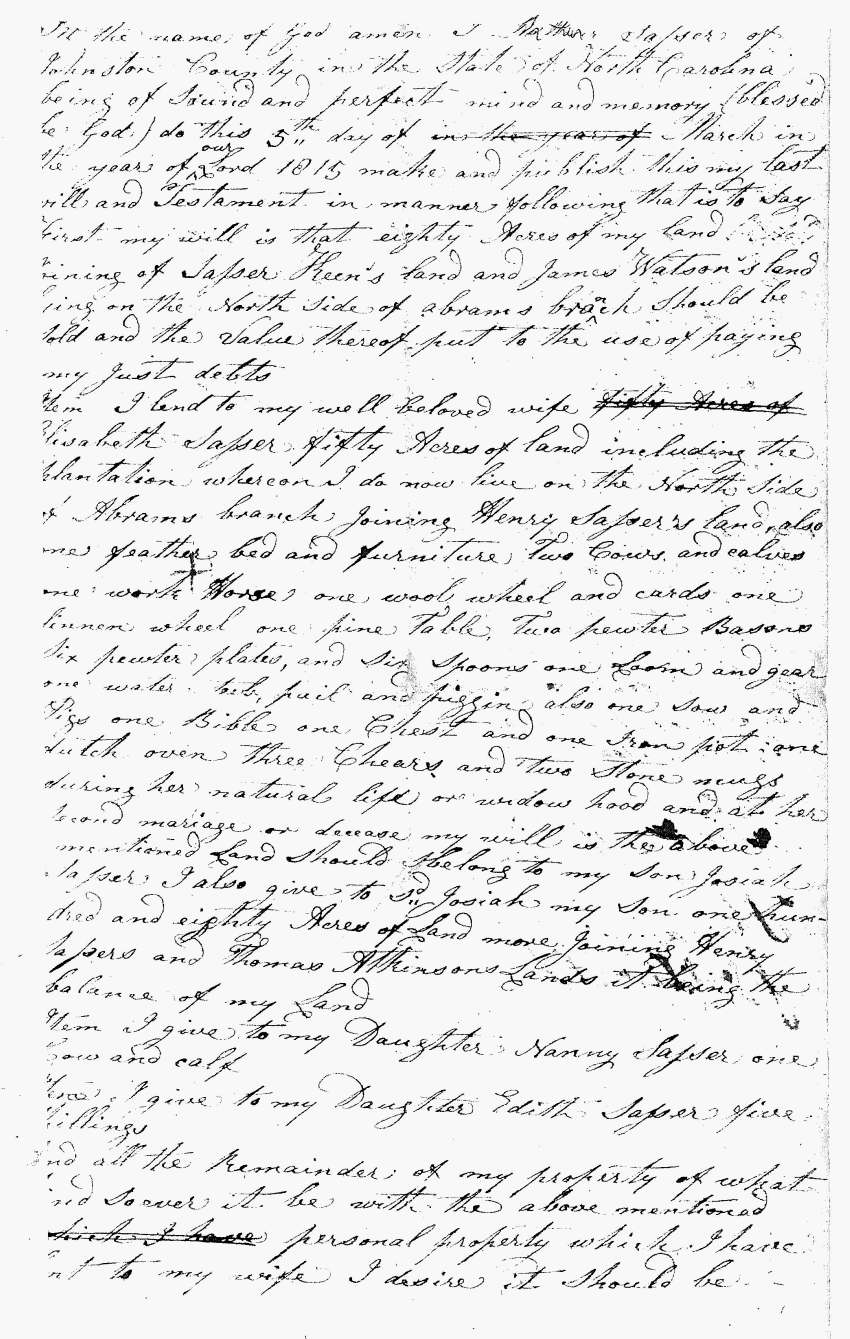 In the name of God amen I Sasser of
Johnston County in the State of North Carolina
being of Sound and perfect mind and memory (blessed
be God) do this 5th day of in the year of March in
the year of our Lord 1815 make and publish this my last
will and Testament in manner following that is to say
First my will is that eighty Acres of my land
joining of Sasser Keen's land and James Watson's land
lying on the North Side of abrams branch should be
sold and the Value thereof put to the use of paying
my Just debts
Item I lend to my well beloved wife fifty Acres of
Elisabeth Sasser fifty Acres of land including the
plantation whereon I do now live on the North Side
of Abrams branch Joining Henry Sasser's land, also
one feather bed and furniture, Two Cows and calves
one work Horse one wool wheel and cards one
linnen wheel one pine Table, Two pewter Basons
Six pewter plates, and six spoons one Loom and gear
one water tub, pail and piggin also one sow and
Pigs one Bible one Chest and one Iron pot one
dutch oven three Chears and two Stone mugs
during her natural life or widow hood and at her
second mariage or decease my will is the above
mentioned Land should belong to my son Josiah
Sasser I also give to sd Josiah my Son one hun-
dred and eighty Acres of Land more Joining Henry
Sassers and Thomas Atkinsons Lands it being the
balance of my Land
Item I give to my Daughter Nanny Sasser one
Cow and calf
Item I give to my Daughter Edith Sasser five
Shillings
And all the Remainder of my property of what
kind Soever it be with the above mentioned
which I have personal property which I have
lent to my wife I desire it should be